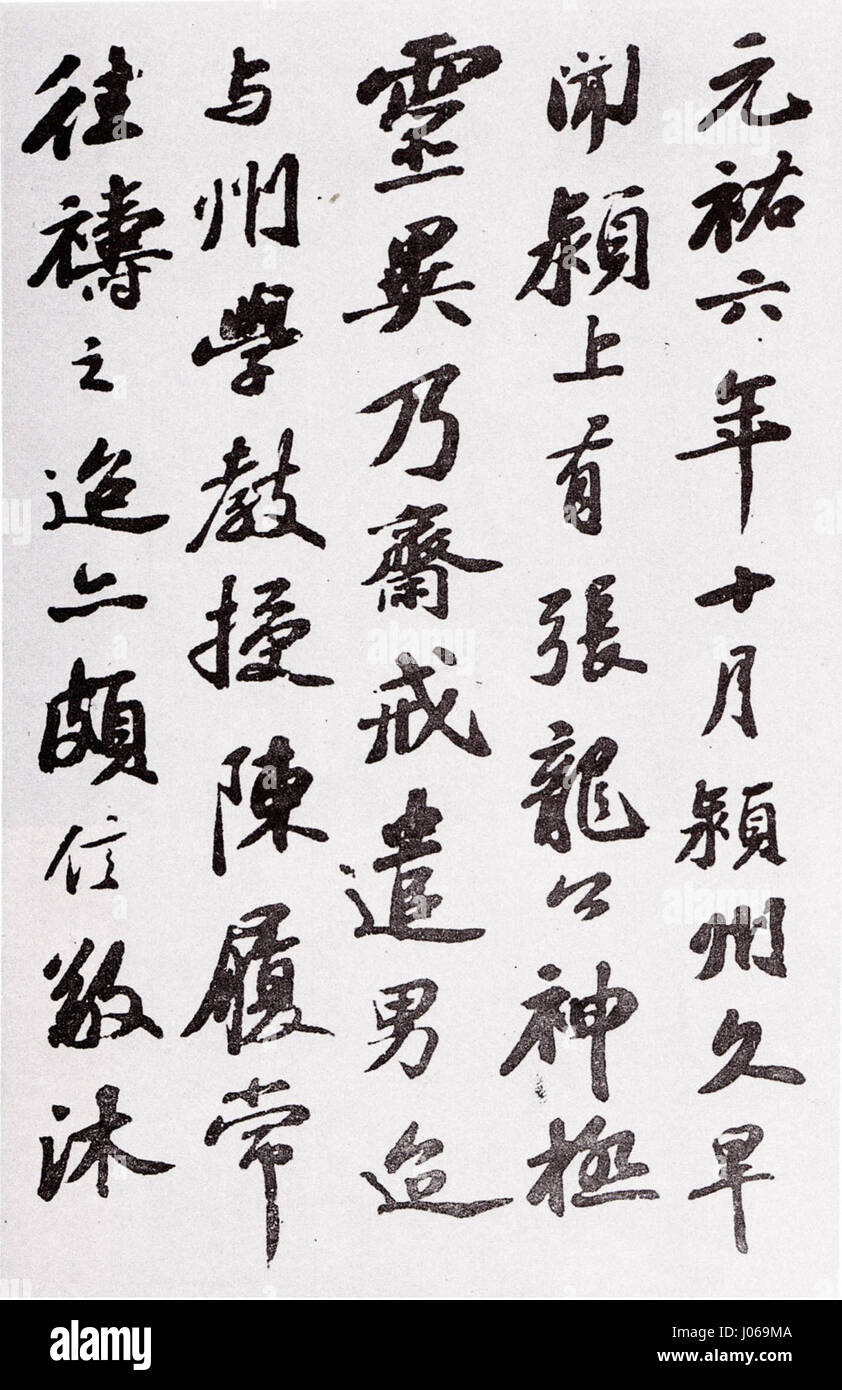 元祐六年十月潁州久旱
聞潁上有張龍公神極
靈異乃齋戒遣男迨
与州學教授陳履常
往禱之迨亦頗信敬沐
alamy stock photo
J069MA
www.alamy.com